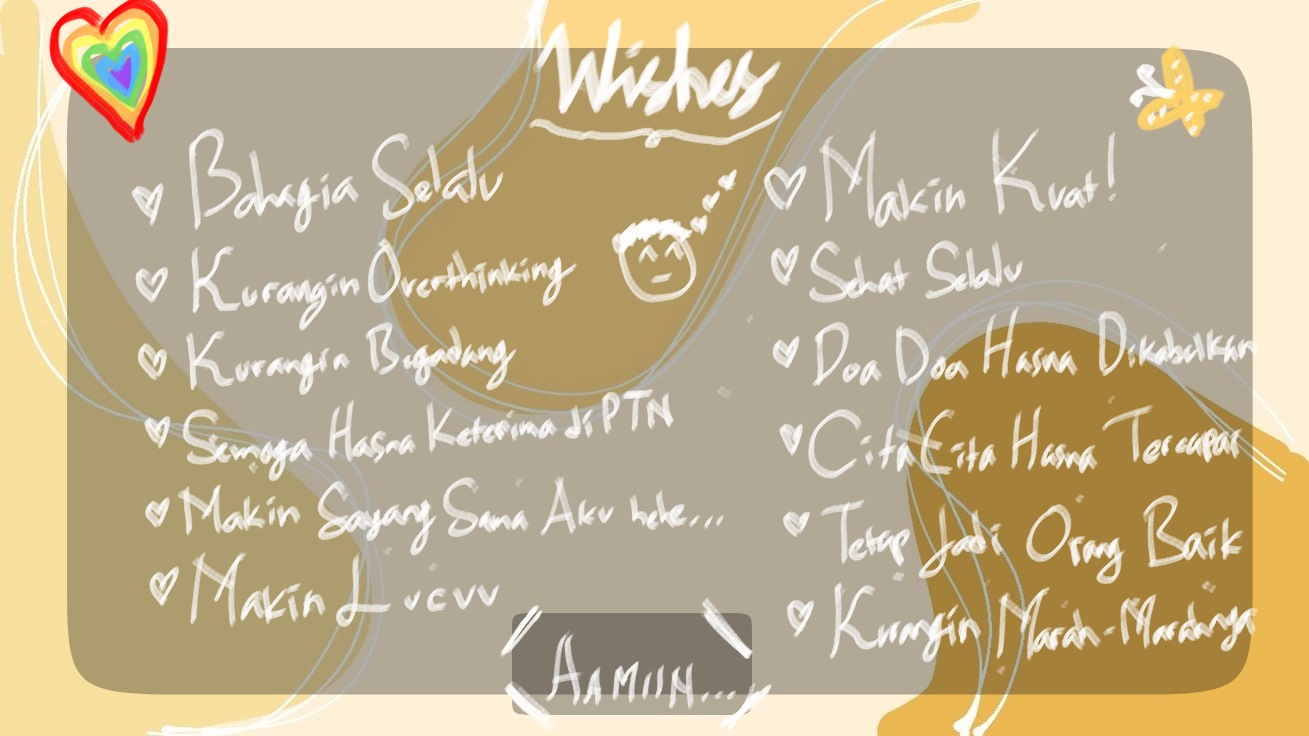 Wishes
Bahagia Selalu
Kurangin Overthinking
Kurangin Begadang
Semoga Hasna Keterima di PTN
Makin Sayang Sama Aku hehe...
Makin Lucuu
Makin Kuat!
Sehat Selalu
Doa Doa Hasna Dikabulkan
Cita Cita Hasna Tercapai
Tetap Jadi Orang Baik
Kurangin Marah-Marahnya
AAMIIN...